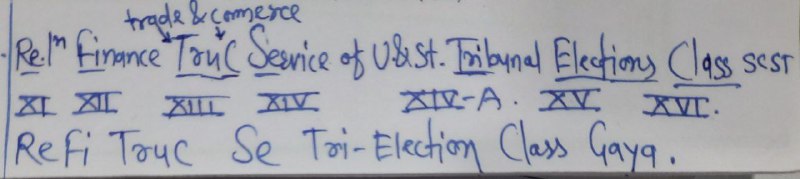 trade & comerce
Relⁿ Finance TruC Service of U&St. Tribunal Elections Class SCST
XI XII XIII XIV XIV-A. XV XVI.
ReFi Truc Se Tri-Election Class Gaya.